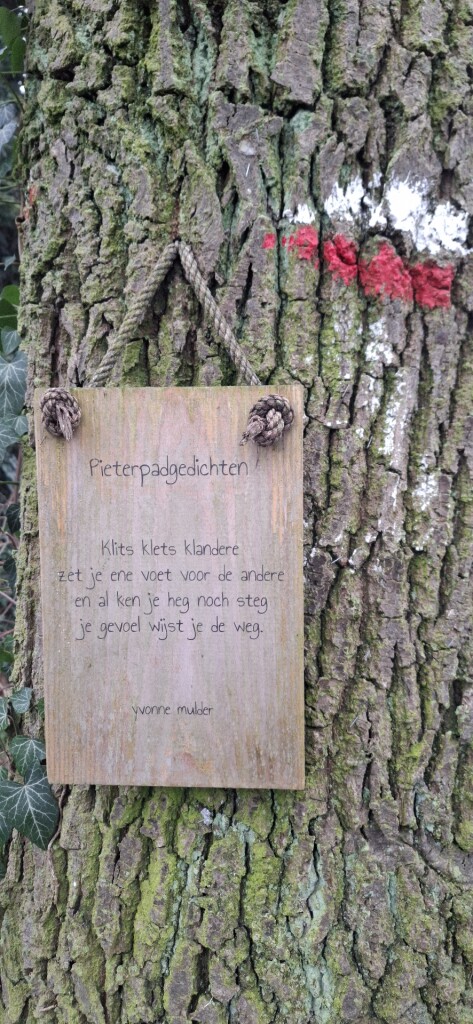 Pieterpadgedichten
Klits klets klandere
zet je ene voet voor de andere
en al ken je heg noch steg
je gevoel wijst je de weg.
yvonne mulder